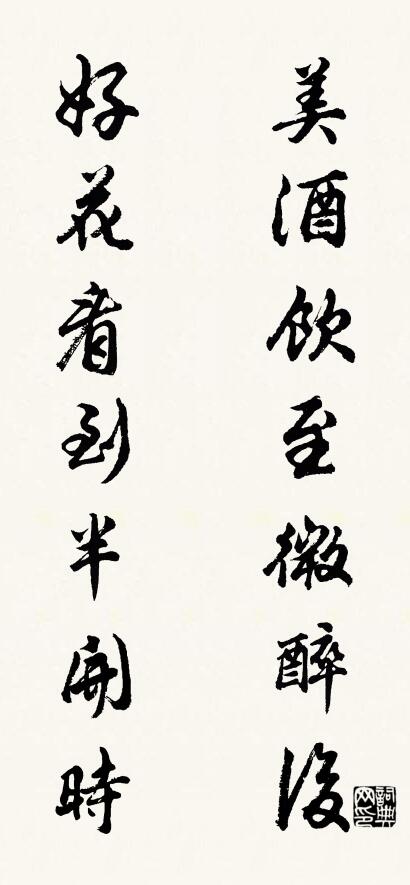 美酒飲至微醉後
好花看到半開時
詞典网印